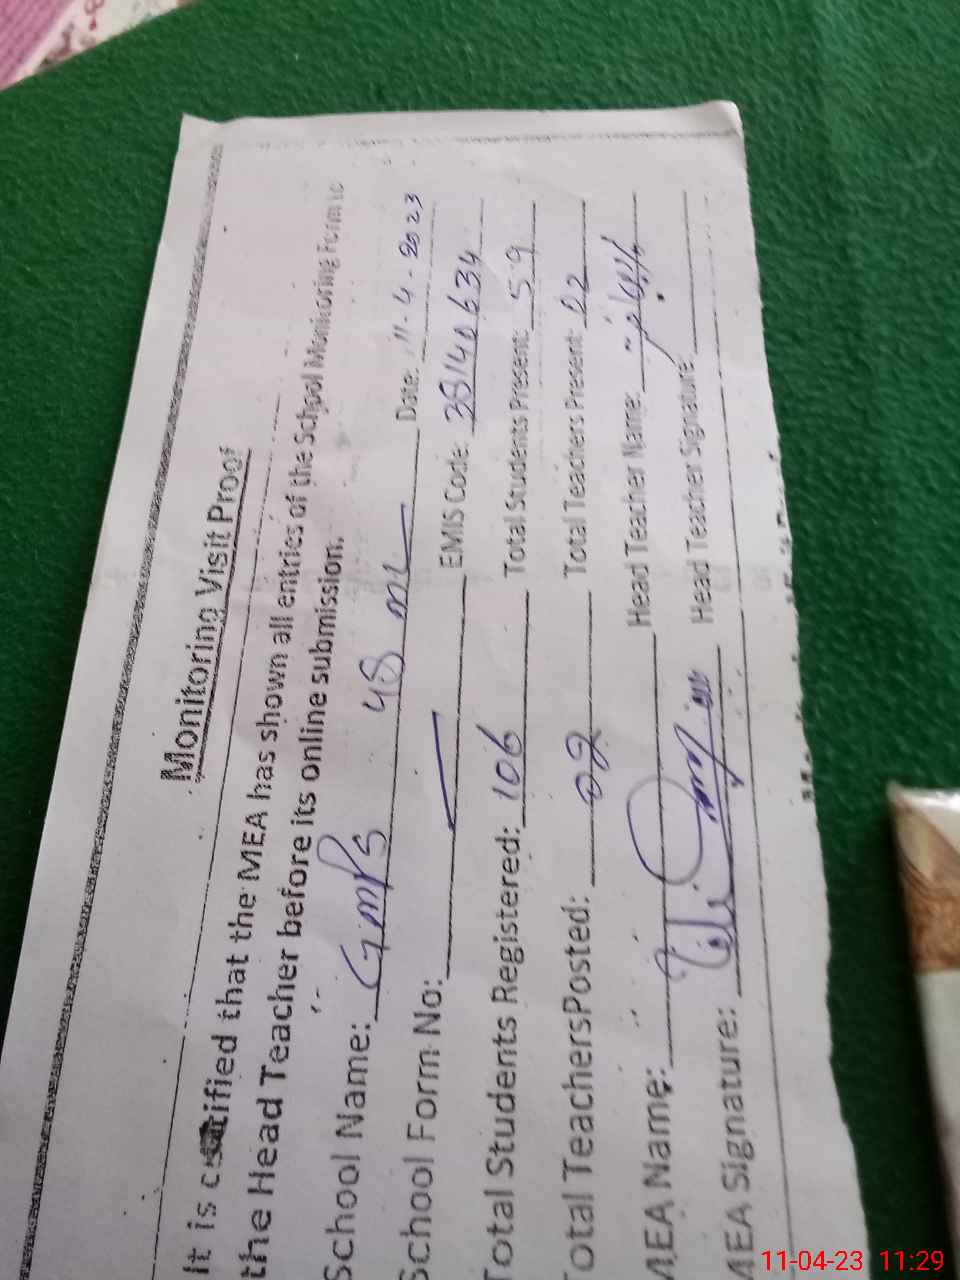 Monitoring Visit Proof
It is certified that the MEA has shown all entries of the School Monitoring Form to
the Head Teacher before its online submission.
School Name: GMPS 48 ML Date: 11-4-2023
School Form No: EMIS Code: 38140634
Total Students Registered: 106 Total Students Present: 59
Total TeachersPosted: 02 Total Teachers Present: 02
MEA Name: Head Teacher Name:
MEA Signature: Head Teacher Signature:
11-04-23 11:29